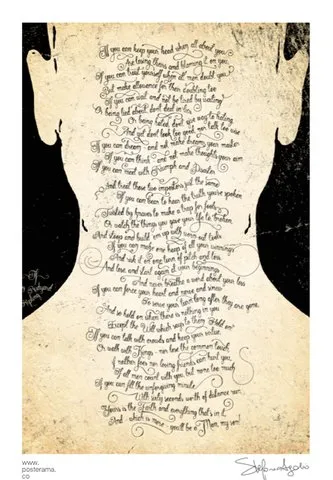 If you can keep your head when all about you
Are losing theirs and blaming it on you,
If you can trust yourself when all men doubt you,
But make allowance for their doubting too
If you can wait and not be tired by waiting
Or being lied about, don't deal in lies
Or being hated, don't give way to hating
And yet don't look too good, nor talk too wise
If you can dream - and not make dreams your master
If you can think - and not make thoughts your aim
If you can meet with Triumph and Disaster
And treat those two impostors just the same
If you can bear to hear the truth you've spoken
Twisted by knaves to make a trap for fools
Or watch the things you gave your life to, broken
And stoop and build 'em up with worn out tools
If you can make one heap of all your winnings
And risk it on one turn of pitch and toss
And lose, and start again at your beginnings
And never breathe a word about your loss
If you can force your heart and nerve and sinew
To serve your turn long after they are gone
And so hold on when there is nothing in you
Except the Will which says to them Hold on!
If you can talk with crowds and keep your virtue
Or walk with Kings - nor lose the common touch
If neither foes nor loving friends can hurt you,
If all men count with you, but none too much
If you can fill the unforgiving minute
With sixty seconds worth of distance run,
Yours is the Earth and everything that's in it
And - which is more - you'll be a Man, my son!
If
Rudyard
Kipling
www.
posterama.
co